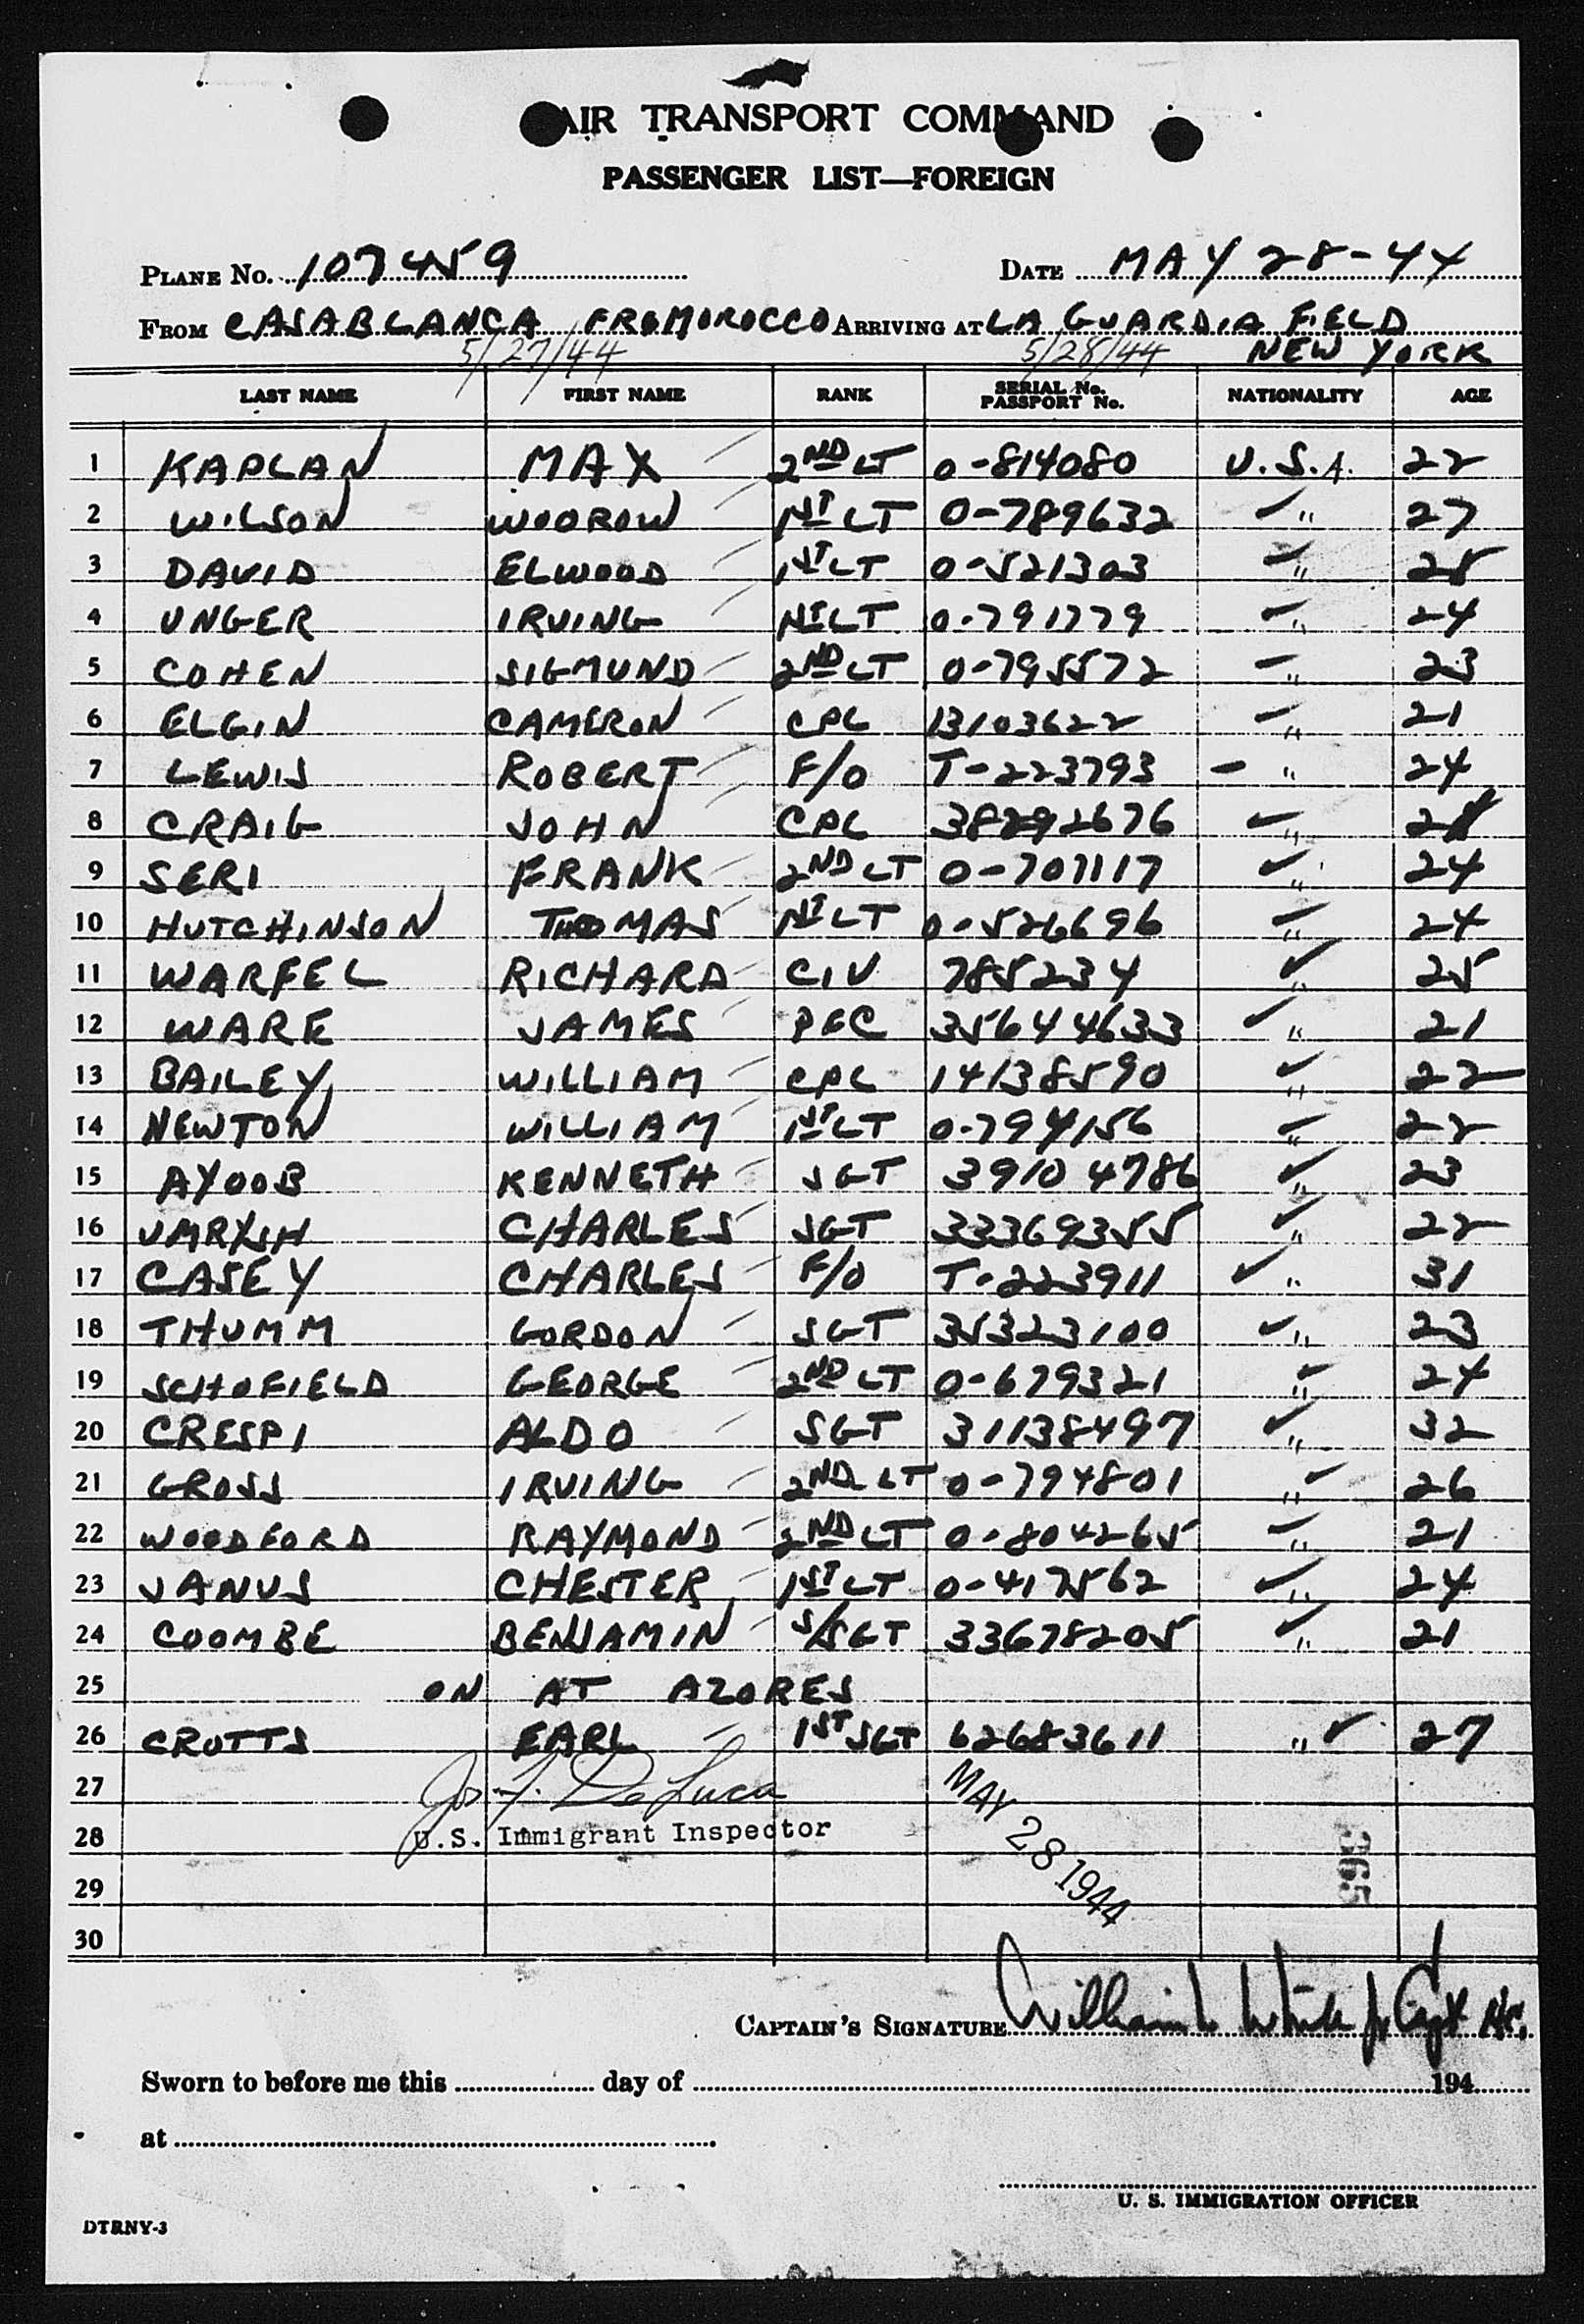 AIR TRANSPORT COMMAND
PASSENGER LIST—FOREIGN
PLANE No. 107459 DATE MAY 28-44
FROM CASABLANCA, FR. MOROCCO ARRIVING AT LA GUARDIA FIELD
5/27/44 5/28/44 NEW YORK
LAST NAME FIRST NAME RANK SERIAL No. PASSPORT No. NATIONALITY AGE
1 KAPLAN MAX 2ND LT 0-814080 U.S.A. 22
2 WILSON WOOROW 1ST LT 0-789632 " 27
3 DAVID ELWOOD 1ST LT 0-521303 " 25
4 UNGER IRVING 1ST LT 0-791779 " 24
5 COHEN SIGMUND 2ND LT 0-795572 " 23
6 ELGIN CAMERON CPL 13103622 " 21
7 LEWIS ROBERT F/O T-223793 " 24
8 CRAIG JOHN CPL 38292676 "
9 SERI FRANK 2ND LT 0-707117 " 24
10 HUTCHINSON THOMAS 1ST LT 0-526696 " 24
11 WARFEL RICHARD CIV 785234 " 25
12 WARE JAMES PFC 35644633 " 21
13 BAILEY WILLIAM CPL 14138590 " 22
14 NEWTON WILLIAM 1ST LT 0-794156 " 22
15 AYOOB KENNETH SGT 39104786 " 23
16 CHARLES SGT 33369355 " 22
17 CASEY CHARLES F/O T-223911 " 31
18 THUMM GORDON SGT 35323100 " 23
19 SCHOFIELD GEORGE 2ND LT 0-679321 " 24
20 CRESPI ALDO SGT 31138497 " 32
21 GROSS IRVING 2ND LT 0-794801 " 26
22 WOODFORD RAYMOND 2ND LT 0-804265 " 21
23 JANUS CHESTER 1ST LT 0-417562 " 24
24 COOMBE BENJAMIN S/SGT 33678205 " 21
25 ON AT AZORES
26 CROTTS EARL 1ST SGT 62683611 " 27
27 Jos. F. De Luca
28 U.S. Immigrant Inspector
MAY 28 1944
365
29
30
CAPTAIN'S SIGNATURE William L White Jr Capt AC.
Sworn to before me this day of 194
at
U. S. IMMIGRATION OFFICER
DTRNY-3